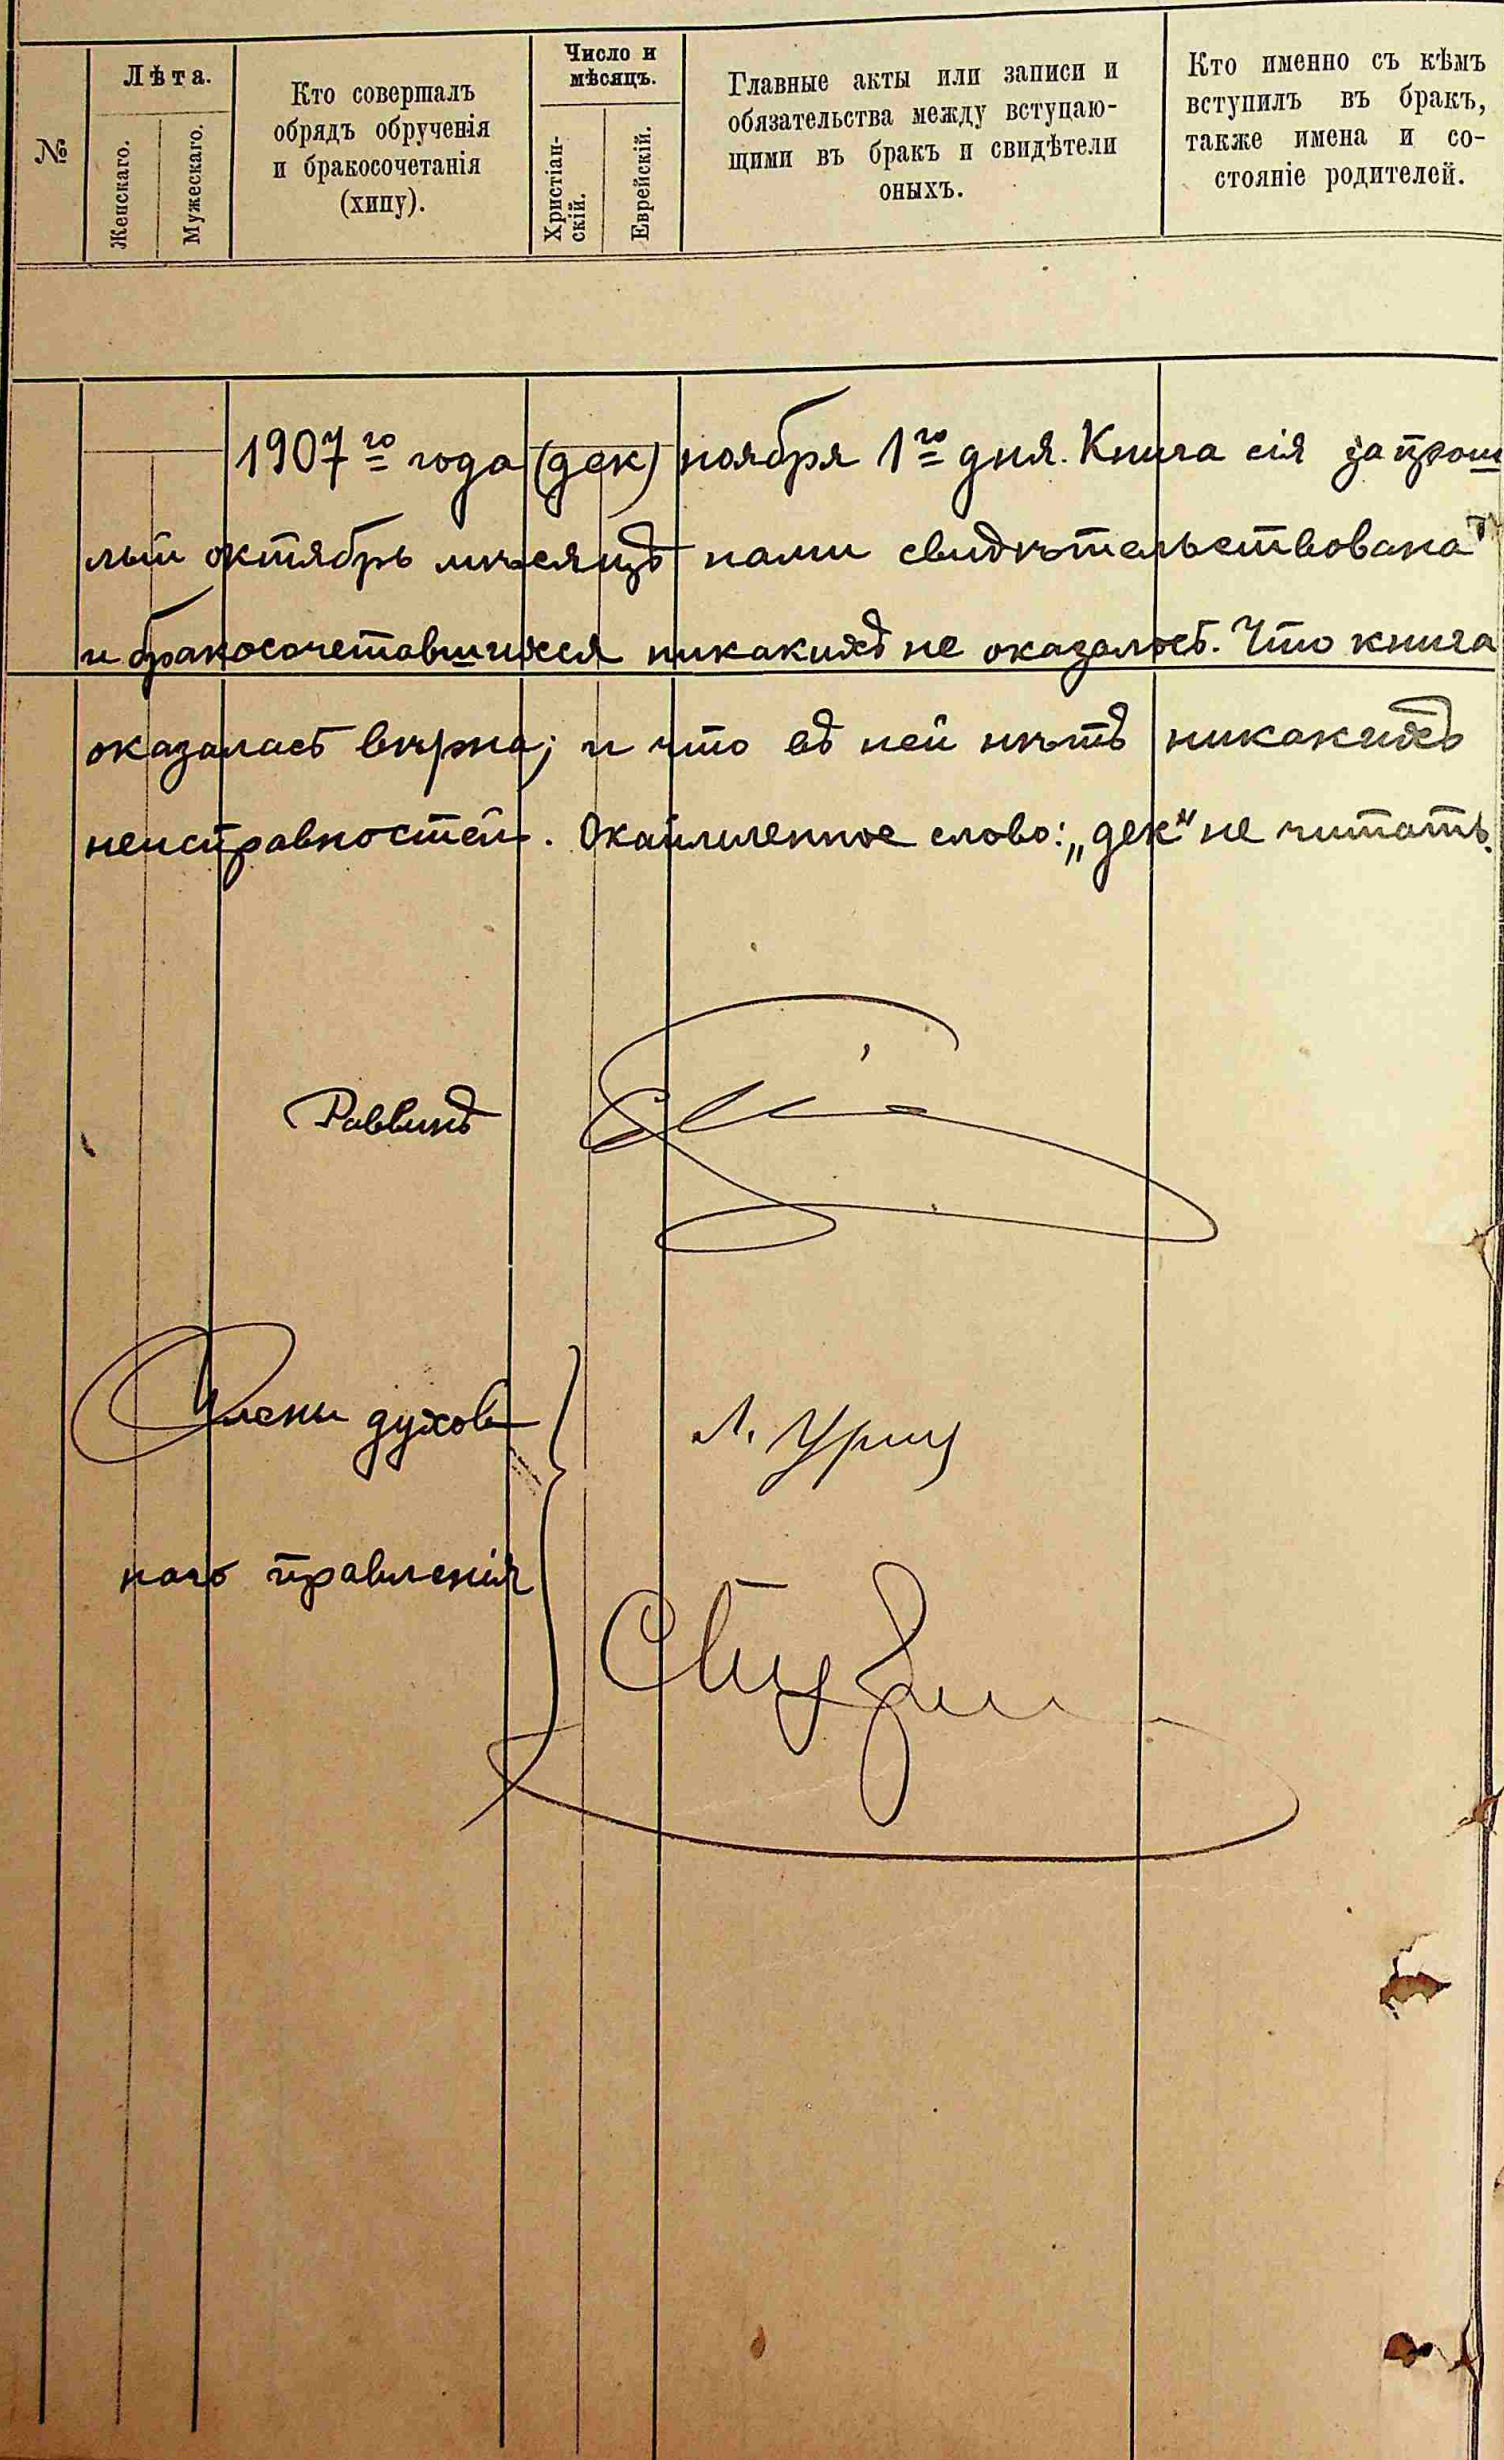 №
Лѣта.
Женскаго.
Мужескаго.
Кто совершалъ
обрядъ обрученія
и бракосочетанія
(хипу).
Число и
мѣсяцъ.
Христіан-
скій.
Еврейскій.
Главные акты или записи и
обязательства между вступаю-
щими въ бракъ и свидѣтели
оныхъ.
Кто именно съ кѣмъ
вступилъ въ бракъ,
также имена и со-
стояніе родителей.
1907го года (дек) ноября 1го дня. Книга сія за прош
лый октябрь мѣсяцъ нами свидѣтельствована
и бракосочетавшихся никакихъ не оказалось. Что книга
оказалась вѣрна; и что въ ней нѣтъ никакихъ
неисправностей. Окаймленное слово: „дек" не читать.
Раввинъ
Члены духов
наго правленія
Л. Уриц